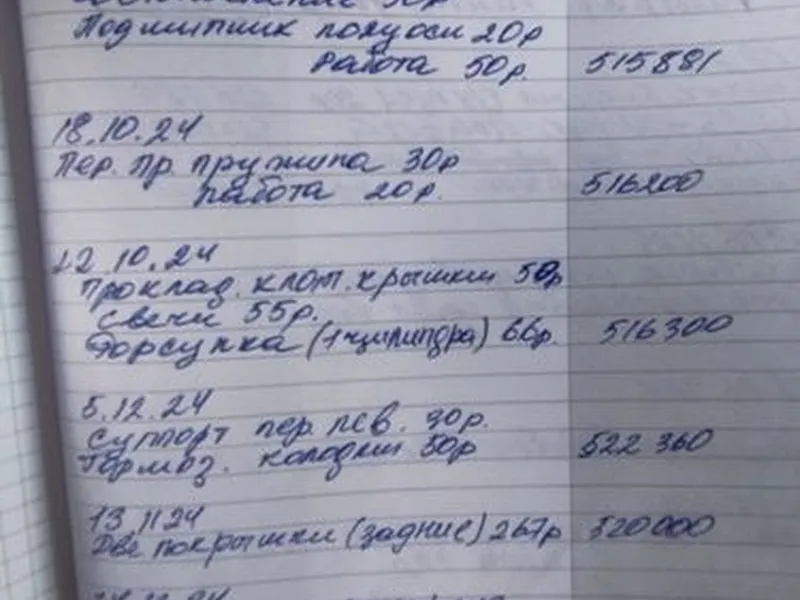 Подшипник полуоси 20р
Работа 50р. 515881
18.10.24
Пер. пр. пружина 30р
работа 20р. 516200
22.10.24
Проклад. клап. крышки 50р
свечи 55р.
Форсунка (1 цилиндра) 66р. 516300
5.12.24
Суппорт пер. лев. 30р.
Тормоз. колодки 50р 522 360
13.11 24
Две покрышки (задние) 267р 520000